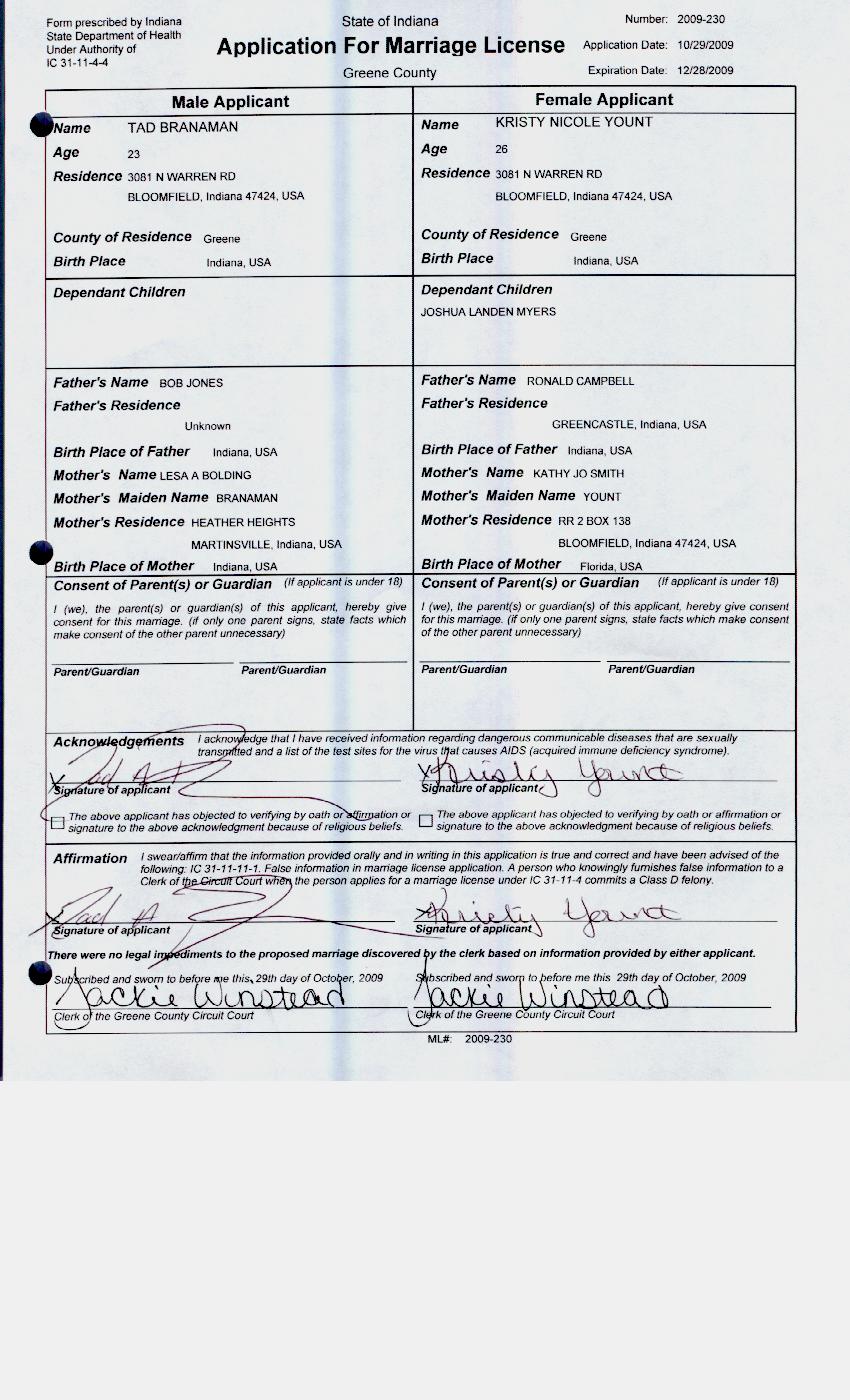 Form prescribed by Indiana
State Department of Health
Under Authority of
IC 31-11-4-4
State of Indiana
Application For Marriage License
Greene County
Number: 2009-230
Application Date: 10/29/2009
Expiration Date: 12/28/2009
Male Applicant
Name TAD BRANAMAN
Age 23
Residence 3081 N WARREN RD
BLOOMFIELD, Indiana 47424, USA
County of Residence Greene
Birth Place Indiana, USA
Female Applicant
Name KRISTY NICOLE YOUNT
Age 26
Residence 3081 N WARREN RD
BLOOMFIELD, Indiana 47424, USA
County of Residence Greene
Birth Place Indiana, USA
Dependant Children
Dependant Children
JOSHUA LANDEN MYERS
Father's Name BOB JONES
Father's Residence
Unknown
Birth Place of Father Indiana, USA
Mother's Name LESA A BOLDING
Mother's Maiden Name BRANAMAN
Mother's Residence HEATHER HEIGHTS
MARTINSVILLE, Indiana, USA
Birth Place of Mother Indiana, USA
Father's Name RONALD CAMPBELL
Father's Residence
GREENCASTLE, Indiana, USA
Birth Place of Father Indiana, USA
Mother's Name KATHY JO SMITH
Mother's Maiden Name YOUNT
Mother's Residence RR 2 BOX 138
BLOOMFIELD, Indiana 47424, USA
Birth Place of Mother Florida, USA
Consent of Parent(s) or Guardian (If applicant is under 18)
I (we), the parent(s) or guardian(s) of this applicant, hereby give
consent for this marriage. (if only one parent signs, state facts which
make consent of the other parent unnecessary)
Parent/Guardian Parent/Guardian
Consent of Parent(s) or Guardian (If applicant is under 18)
I (we), the parent(s) or guardian(s) of this applicant, hereby give consent
for this marriage. (if only one parent signs, state facts which make consent
of the other parent unnecessary)
Parent/Guardian Parent/Guardian
Acknowledgements I acknowledge that I have received information regarding dangerous communicable diseases that are sexually
transmitted and a list of the test sites for the virus that causes AIDS (acquired immune deficiency syndrome).
X Tad
Signature of applicant
X Kristy Yount
Signature of applicant
The above applicant has objected to verifying by oath or affirmation or
signature to the above acknowledgment because of religious beliefs.
The above applicant has objected to verifying by oath or affirmation or
signature to the above acknowledgment because of religious beliefs.
Affirmation I swear/affirm that the information provided orally and in writing in this application is true and correct and have been advised of the
following: IC 31-11-11-1. False information in marriage license application. A person who knowingly furnishes false information to a
Clerk of the Circuit Court when the person applies for a marriage license under IC 31-11-4 commits a Class D felony.
X Tad
Signature of applicant
X Kristy Yount
Signature of applicant
There were no legal impediments to the proposed marriage discovered by the clerk based on information provided by either applicant.
Subscribed and sworn to before me this 29th day of October, 2009
Jackie Winstead
Clerk of the Greene County Circuit Court
Subscribed and sworn to before me this 29th day of October, 2009
Jackie Winstead
Clerk of the Greene County Circuit Court
ML#: 2009-230